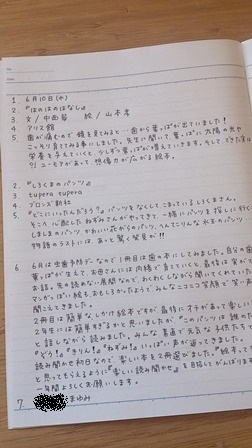 1. 6月10日(水)
2. 『はのはのはなし』
3. 文/中西翠 絵/山本孝
4. アリス館
5. 歯が痛むので鏡を見てみると…歯から葉っぱが出ていました!
こっそり育てみる事にしました。先生に聞いて、葉っぱに太陽の光や
栄養を与えていくと、少しずつ葉っぱが増えていきます。そしてできた実は
?! ユーモアがあって、想像力が広がる絵本。
2. 『しろくまのパンツ』
3. tupera tupera
4. ブロンズ新社
5. 『どこにいったんだろう?』パンツをなくしてこまっているしろくまさん。
そこへ心配したねずみさんがやってきて、一緒にパンツを探しに行く
しましまのパンツ、かわいいおかしがらのパンツ、へんてこりんな水玉のパンツ…
物語のラストには、あっと驚く発見が!!
6 6月は虫歯予防デーなので1冊目は歯の本にしてみました。自分の歯
葉っぱが生えて、お母さんには内緒で育てていくと、最後は実がで
お話。先の読めない展開なので、わくわくしながら聞いてくれていた
マンガっぽい絵も、おもしろかったようでみんなニコニコ笑顔で笑い声
聞こえてきました。
2冊目は簡単なしかけ絵本ですが、最後にオチがあって楽しい
2年生には簡単すぎるかと思いましたが「このパンツは誰のだ
と話しながら読みました。みんな素直で元気な子供たちで
「どう!」「きりん!」「ねずみ!」いっぱい声が返ってきました。
読み聞かせ初日なので、楽しい本を2冊選びました。『絵本って
と思ってもらえるように『楽しい読み聞かせ』を目指してがんばります
一年間よろしくお願いします。
7 まゆみ